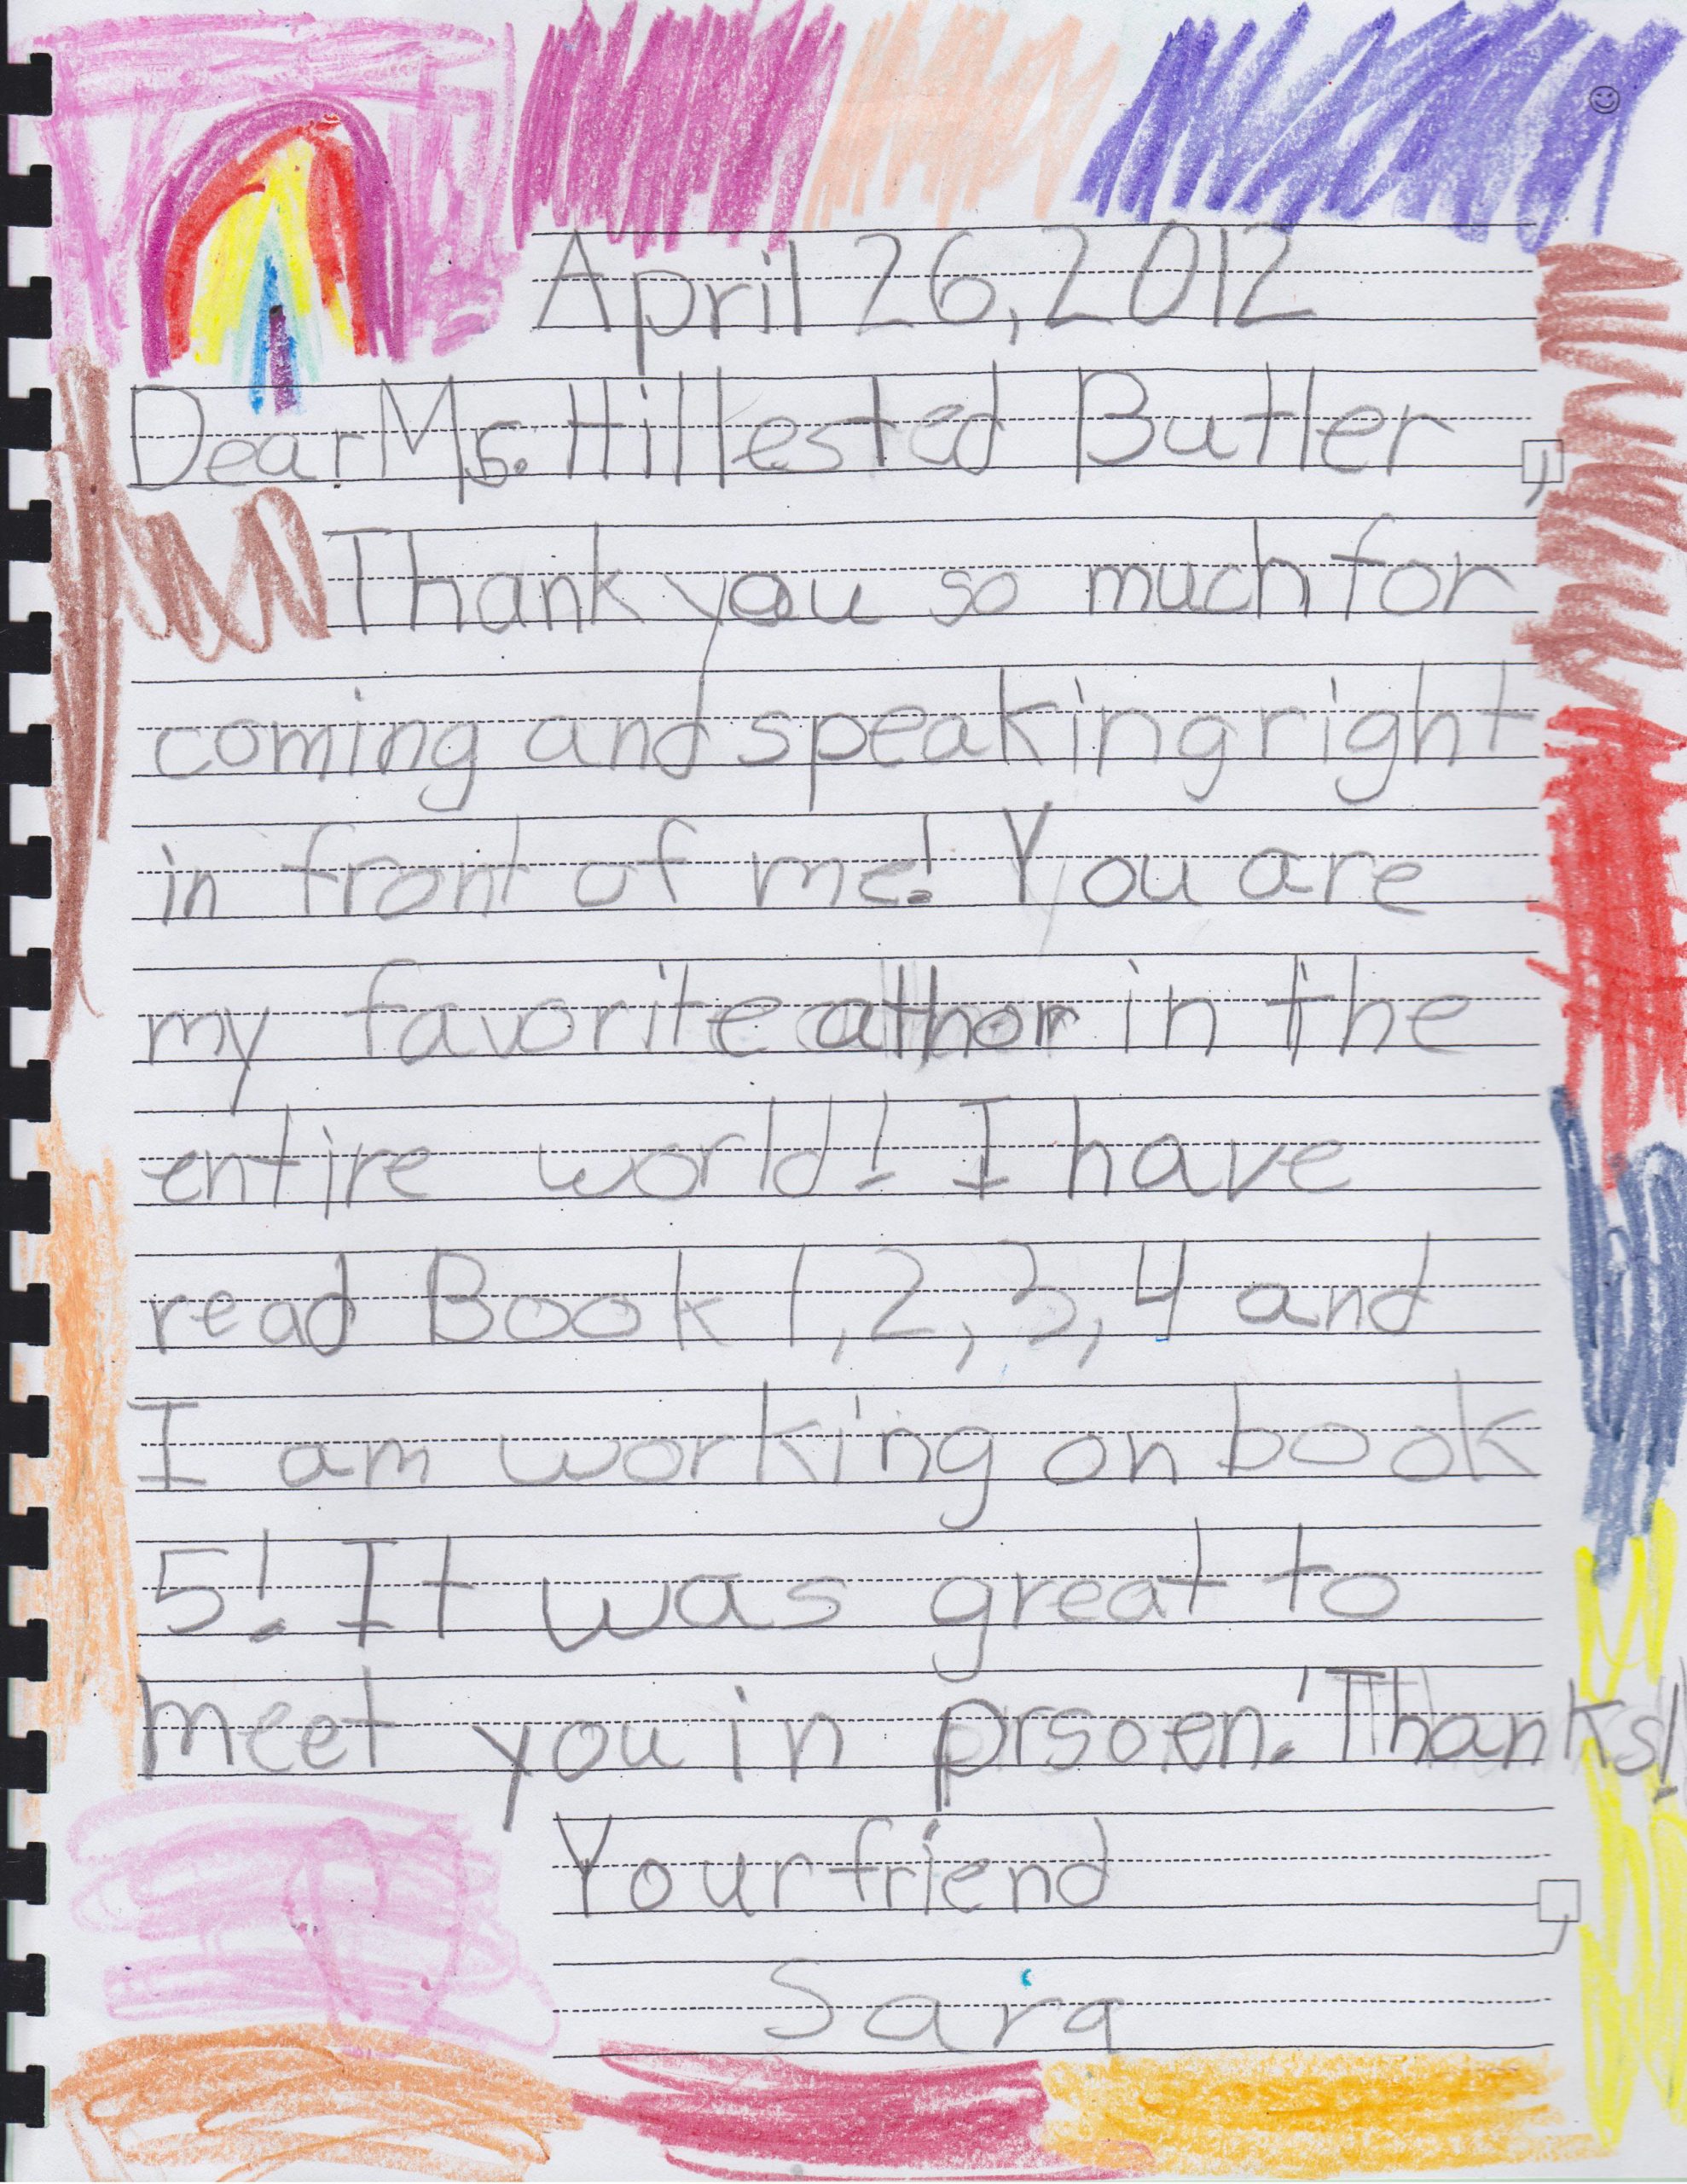 April 26, 2012
Dear Ms. Hillested Butler,
Thank you so much for
coming and speaking right
in front of me! You are
my favorite athor in the
entire world! I have
read Book 1, 2, 3, 4 and
I am working on book
5! It was great to
meet you in prsoen! Thanks!
Your friend,
Sara